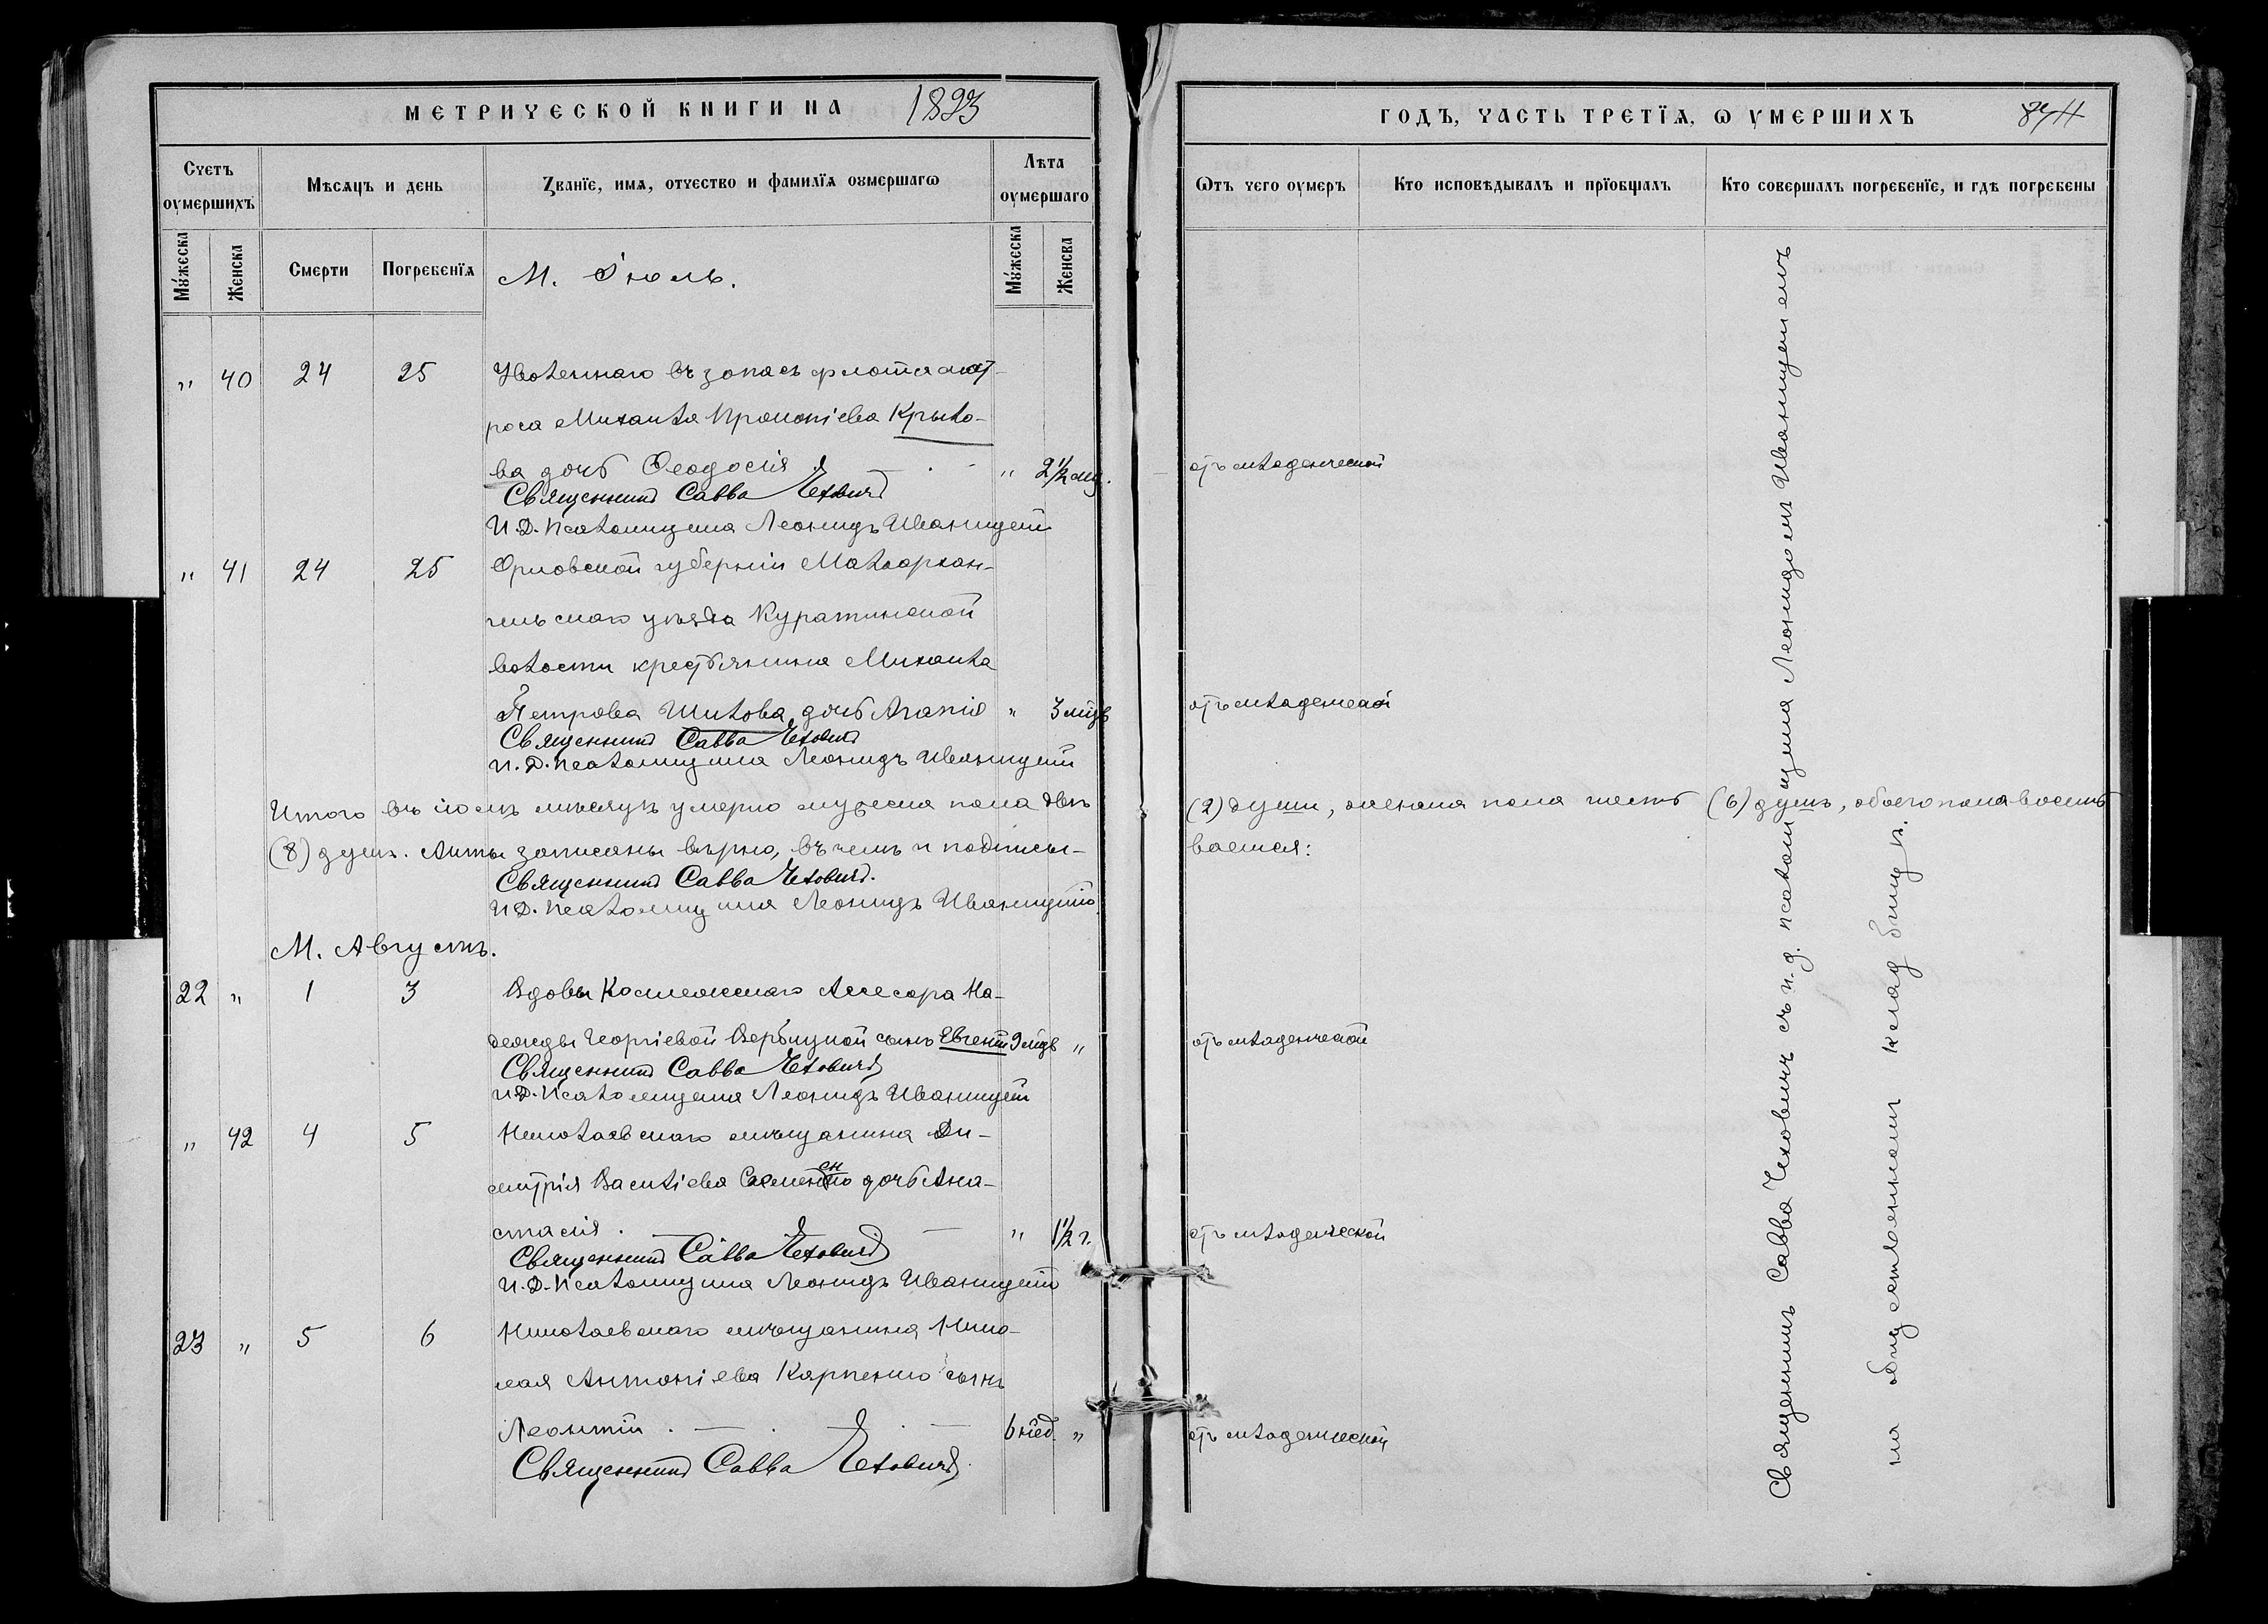 МЕТРИЧЕСКОЙ КНИГИ НА 1893
Счетъ оумершихъ
Мѣсяцъ и день
Званїе, имя, отчество и фамилїя оумершагω
Лѣта оумершаго
Мужеска
Женска
Смерти
Погребенїя
М. Іюль.
Мужеска
Женска
" 40 24 25 Уволеннаго въ запасъ флота мат-
роса Михаила Прокопіева Крыло-
ва дочь Феодосія " 2½ мѣс.
Священникъ Савва Чеховичъ
И.Д. Псаломщика Леонидъ Иваницкій
" 41 24 25 Орловской губерніи Малоархан-
гельскаго уѣзда Куракинской
волости крестьянина Михаила
Петрова Шилова дочь Агапія " 3 мѣс.
Священникъ Савва Чеховичъ
И.Д. Псаломщика Леонидъ Иваницкій
Итого въ іюлѣ мѣсяцѣ умерло мужеска пола двѣ
(8) душъ. Акты записаны вѣрно, въ чемъ и подписы-
Священникъ Савва Чеховичъ.
И.Д. Псаломщика Леонидъ Иваницкій
М. Августъ.
22 " 1 3 Вдовы Коллежскаго Ассесора На-
дежды Георгіевой Вербицкой сынъ Евгеній 9 мѣс. "
Священникъ Савва Чеховичъ
И.Д. Псаломщика Леонидъ Иваницкій
" 42 4 5 Николаевскаго мѣщанина Ди-
митрія Василіева дочь Ана-
стасія. " 1½ г.
Священникъ Савва Чеховичъ
И.Д. Псаломщика Леонидъ Иваницкій
23 " 5 6 Николаевскаго мѣщанина Нико-
лая Антоніева Карпенко сынъ
Леонтій 6 нед. "
Священникъ Савва Чеховичъ.
ГОДЪ, ЧАСТЬ ТРЕТЇЯ, Ѡ УМЕРШИХЪ
Ѿтъ чего оумеръ
Кто исповѣдывалъ и прїобщалъ
Кто совершалъ погребенїе, и гдѣ погребены
отъ младенческой
отъ младенческой
(2) души, женска пола шесть (6) душъ, обоего пола восемь
ваемся:
отъ младенческой
отъ младенческой
отъ младенческой
Священникъ Савва Чеховичъ съ и.д. псаломщика Леонидомъ Иваницкимъ
на кладбищѣ.